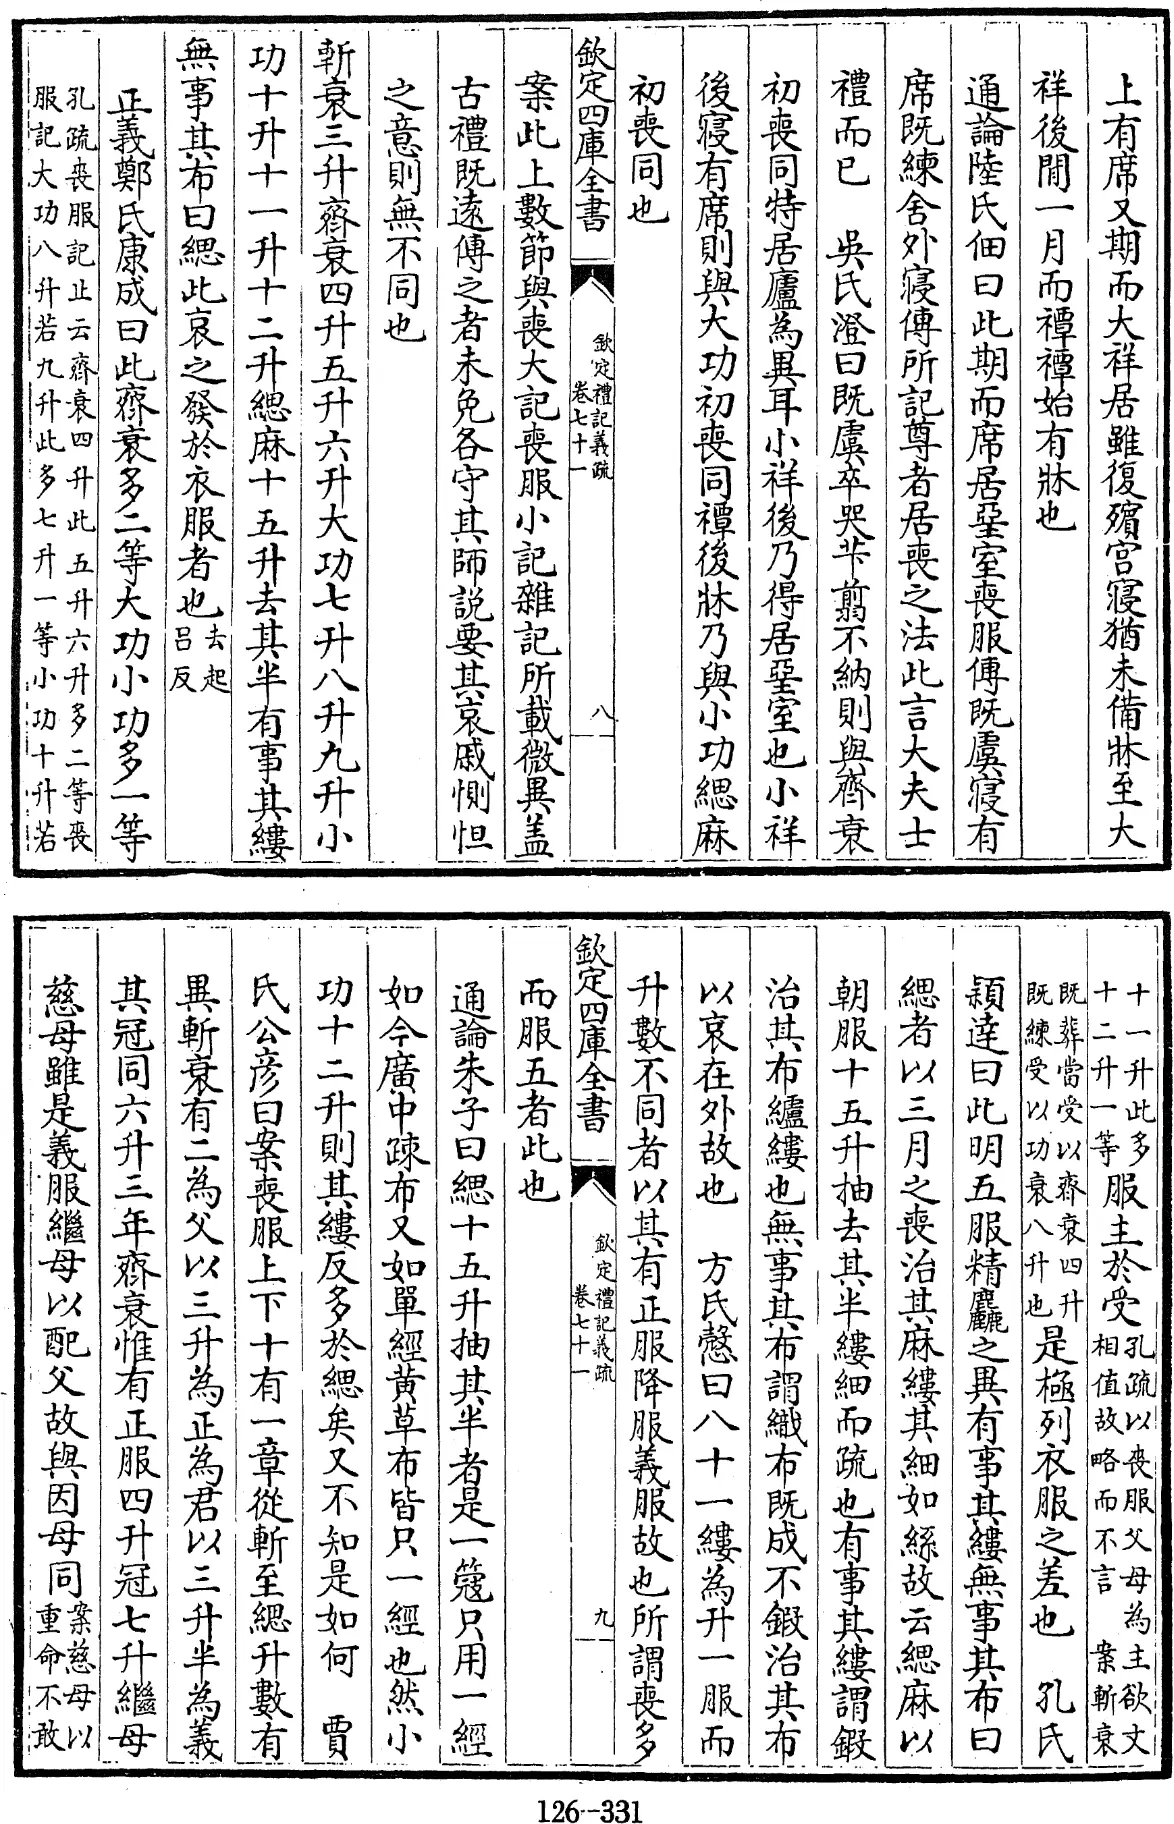 上有席又期而大祥居雖復殯宮寢猶未備牀至大
祥後閒一月而禫禫始有牀也
通論陸氏佃曰此期而席居堊室喪服傳既虞寢有
席既練舍外寢傳所記尊者居喪之法此言大夫士
禮而已　吳氏澄曰既虞卒哭芐翦不納則與齊衰
初喪同特居廬為異耳小祥後乃得居堊室也小祥
後寢有席則與大功初喪同禫後牀乃與小功緦麻
初喪同也
欽定四庫全書
欽定禮記義疏
卷七十一
八
案此上數節與喪大記喪服小記雜記所載微異蓋
古禮既遠傳之者未免各守其師說要其哀戚惻怛
之意則無不同也
斬衰三升齊衰四升五升六升大功七升八升九升小
功十升十一升十二升緦麻十五升去其半有事其縷
無事其布曰緦此哀之發於衣服者也去起
呂反
正義鄭氏康成曰此齊衰多二等大功小功多一等
孔疏喪服記止云齊衰四升此五升六升多二等喪
服記大功八升若九升此多七升一等小功十升若
十一升此多
十二升一等服主於受孔疏以喪服父母為主欲文
相值故略而不言　案斬衰
既葬當受以齊衰四升
既練受以功衰八升也是極列衣服之差也　孔氏
穎達曰此明五服精麤之異有事其縷無事其布曰
緦者以三月之喪治其麻縷其細如絲故云緦麻以
朝服十五升抽去其半縷細而疏也有事其縷謂鍛
治其布纑縷也無事其布謂織布既成不鍛治其布
以哀在外故也　方氏慤曰八十一縷為升一服而
升數不同者以其有正服降服義服故也所謂喪多
欽定四庫全書
欽定禮記義疏
卷七十一
九
而服五者此也
通論朱子曰緦十五升抽其半者是一簆只用一經
如今廣中疎布又如單經黃草布皆只一經也然小
功十二升則其縷反多於緦矣又不知是如何　賈
氏公彥曰案喪服上下十有一章從斬至緦升數有
異斬衰有二為父以三升為正為君以三升半為義
其冠同六升三年齊衰惟有正服四升冠七升繼母
慈母雖是義服繼母以配父故與因母同案慈母以
重命不敢
126--331